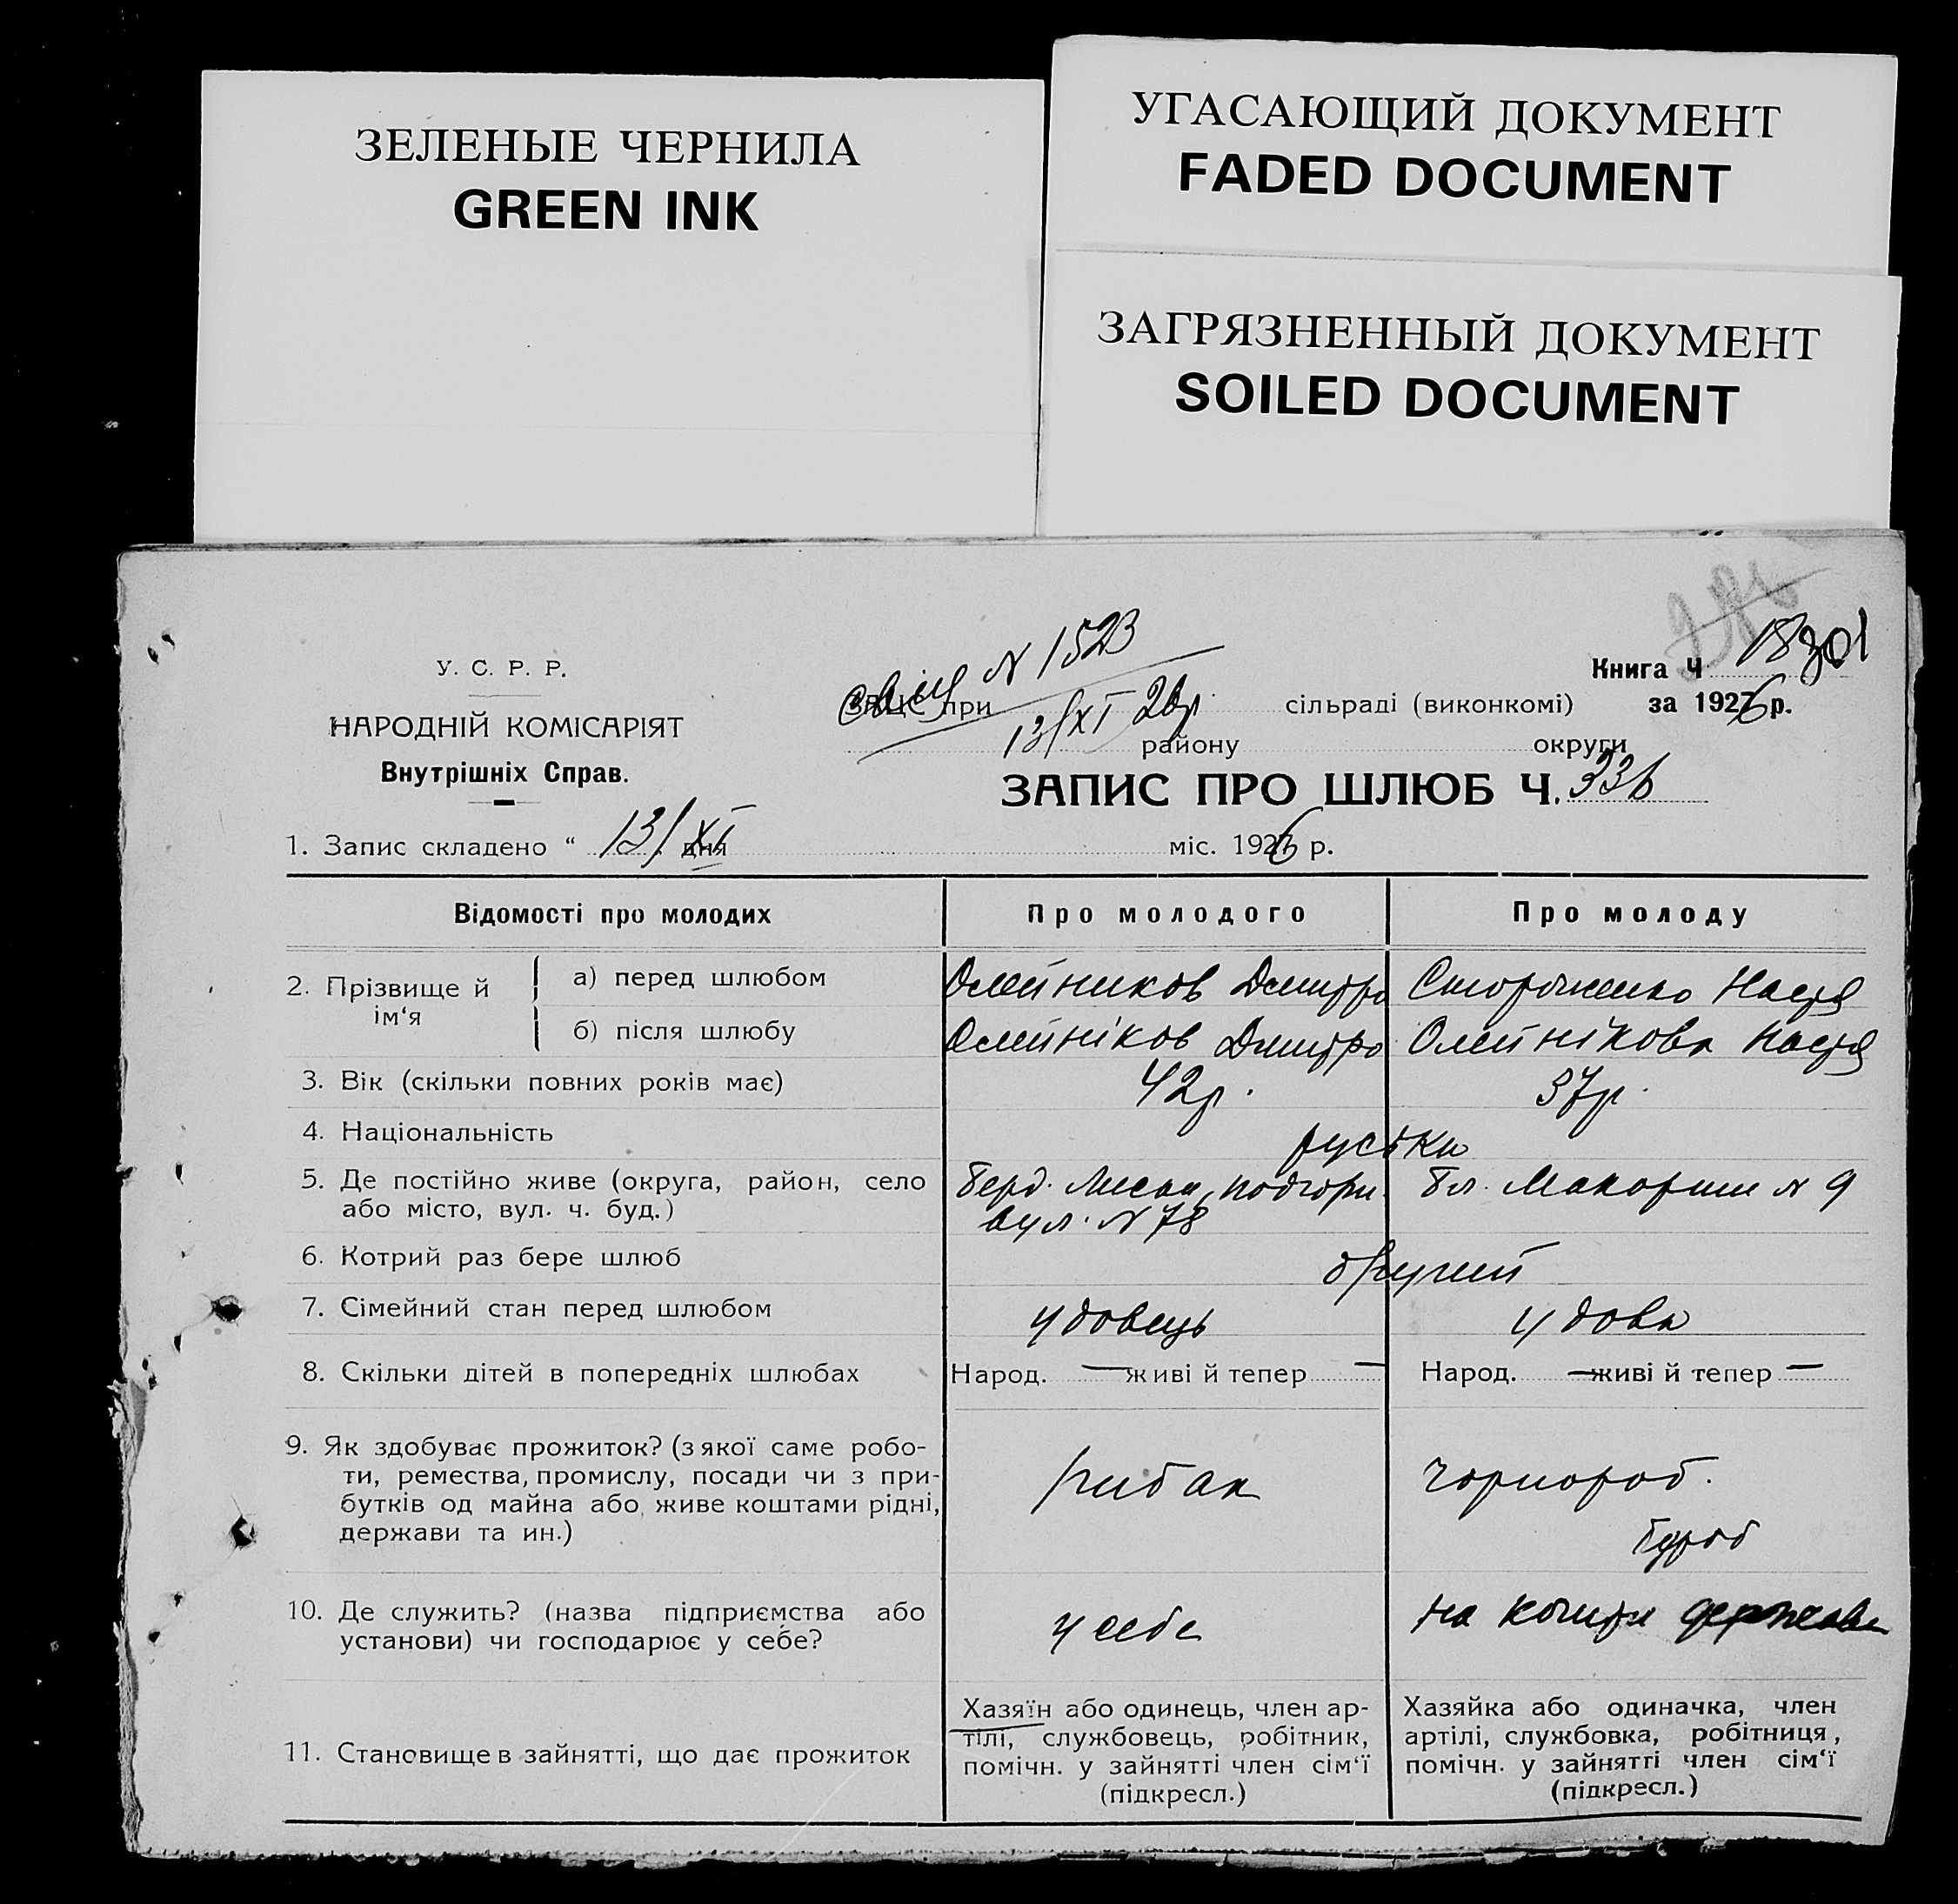 ЗЕЛЕНЫЕ ЧЕРНИЛА
GREEN INK
УГАСАЮЩИЙ ДОКУМЕНТ
FADED DOCUMENT
ЗАГРЯЗНЕННЫЙ ДОКУМЕНТ
SOILED DOCUMENT
N 1523
13/XI 26р.
У. С. Р. Р.
НАРОДНІЙ КОМІСАРІЯТ
Внутрішніх Справ.
Книга Ч
ЗАЦС при сільраді (виконкомі) за 1926 р.
району округи
ЗАПИС ПРО ШЛЮБ Ч. 336
1. Запис складено “ 13/XI дня міс. 1926 р.
Відомості про молодих Про молодого Про молоду
2. Прізвище й ім‘я
а) перед шлюбом Олейников Дмитро Стороженко Настя
б) після шлюбу Олейніков Дмитро Олейнікова Настя
3. Вік (скільки повних років має) 42р. 37р.
4. Національність руські
5. Де постійно живе (округа, район, село Берд. Лиски, подгорн. Бл. Макорти N 9
або місто, вул. ч. буд.) вул. N 78
6. Котрий раз бере шлюб другий
7. Сімейний стан перед шлюбом удовець удова
8. Скільки дітей в попередніх шлюбах Народ. — живі й тепер — Народ. — живі й тепер —
9. Як здобуває прожиток? (з якої саме робо-
ти, ремества, промислу, посади чи з при-
бутків од майна або живе коштами рідні,
держави та ин.)
рибак чорнороб.
10. Де служить? (назва підприємства або
установи) чи господарює у себе?
у себе на кошти держави
11. Становище в зайнятті, що дає прожиток
Хазяїн або одинець, член ар-
тілі, службовець, робітник,
помічн. у зайнятті член сім‘ї
(підкресл.)
Хазяйка або одиначка, член
артілі, службовка, робітниця,
помічн. у зайнятті член сім‘ї
(підкресл.)